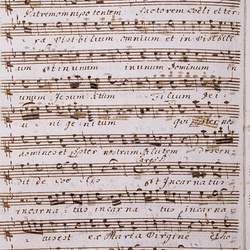 Patrem omnipotentem factorem coeli et ter
rae visibilium omnium et in visibili
um et in unum in unum Dominum in
unum Jesum Xtum Filium Dei
u ni genitum qui propter nos
homines et propter nostram salutem descen
dit de coe lis et incarnatus
incarna tus incarna tus incarna
tus est ex Maria Virgine